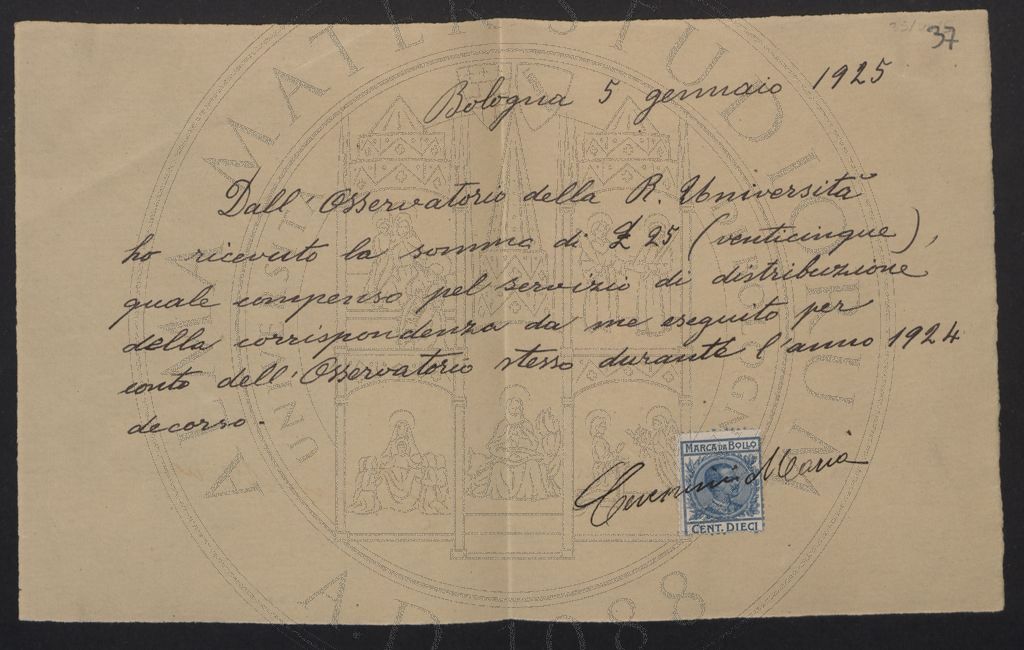 37
Bologna 5 gennaio 1925
Dall'Osservatorio della R. Università
ho ricevuto la somma di £ 25 (venticinque),
quale compenso pel servizio di distribuzione
della corrispondenza da me eseguito per
conto dell'Osservatorio stesso durante l'anno 1924
decorso.
MARCA DA BOLLO
Maria
CENT. DIECI
ALMA MATER STUDIORUM
A.D. 1088